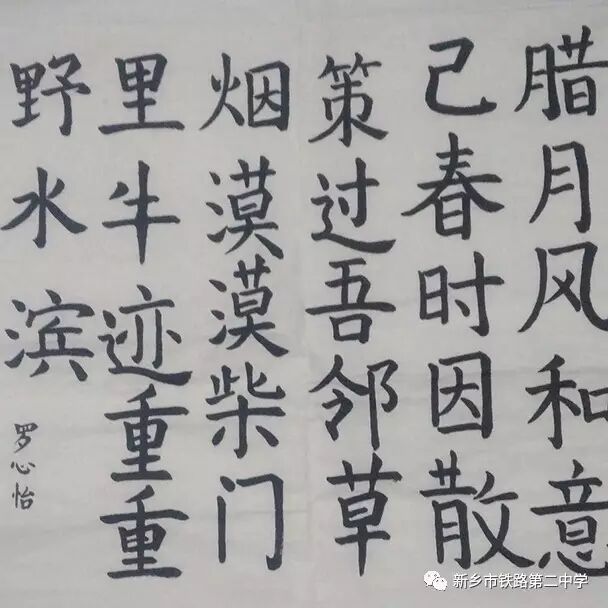 腊月风和意
己春时因散
策过吾邻草
烟漠漠柴门
里牛迹重重
野水滨
罗心怡
新乡市铁路第二中学